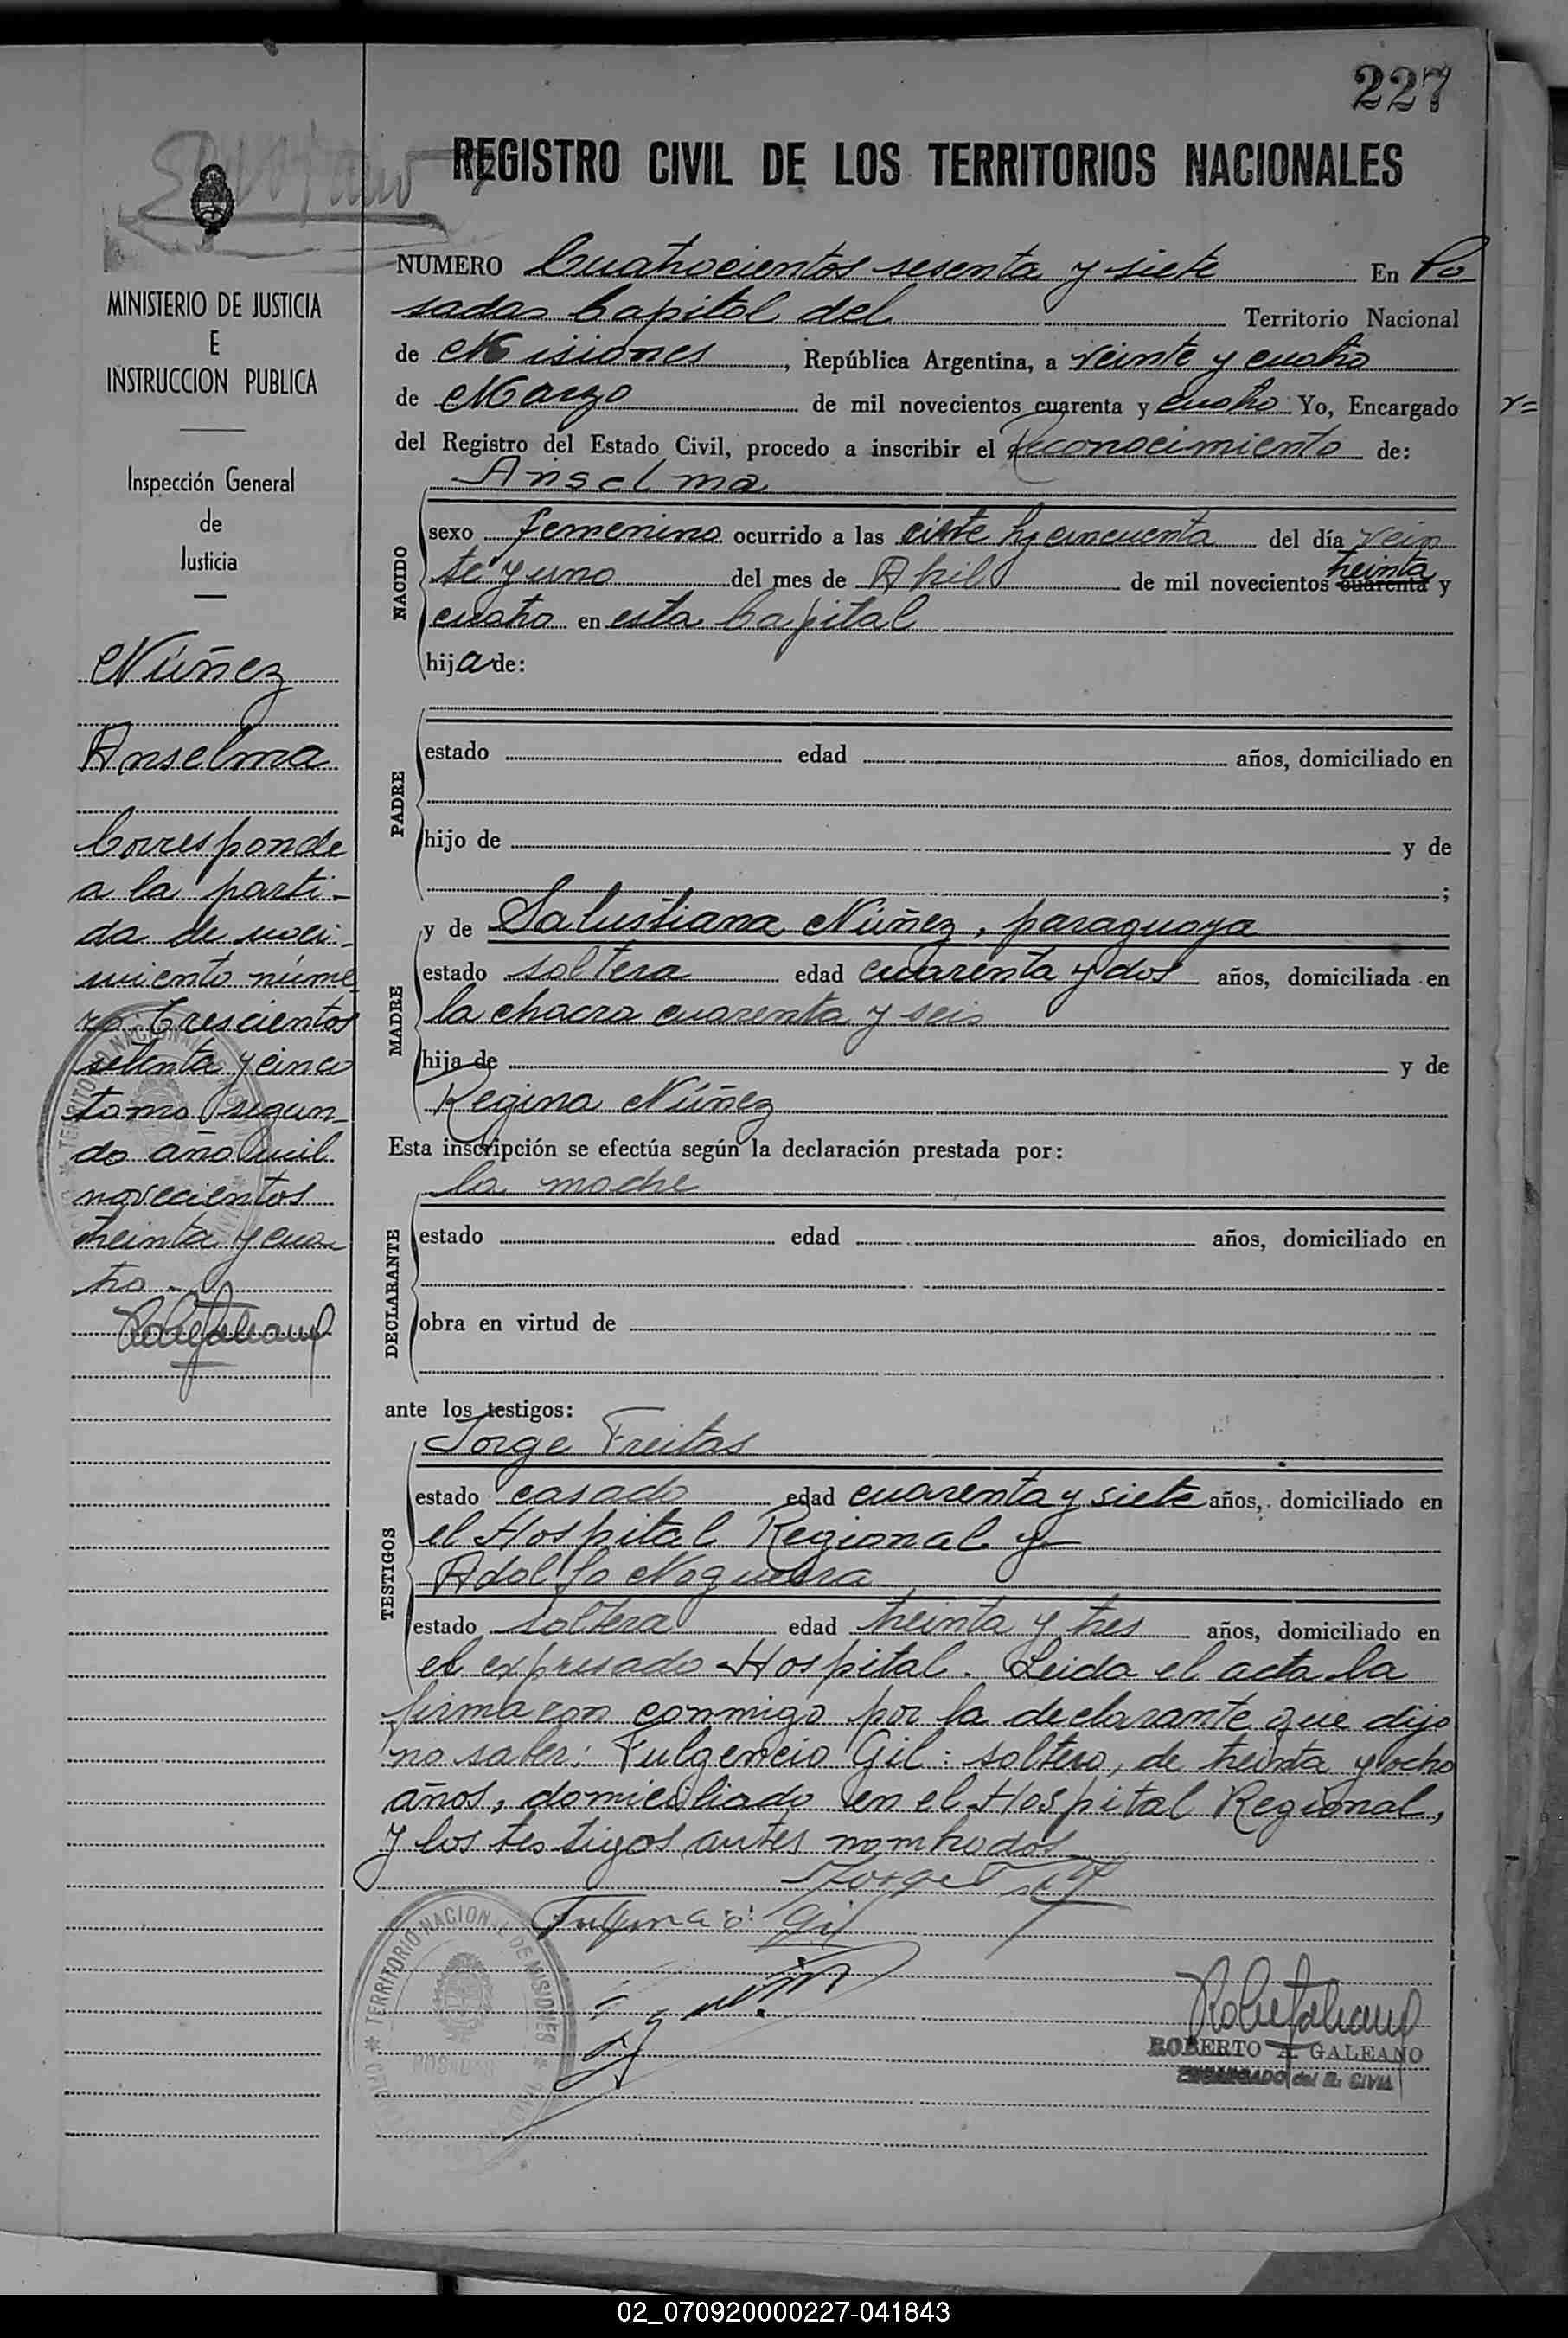 227
REGISTRO CIVIL DE LOS TERRITORIOS NACIONALES
MINISTERIO DE JUSTICIA
E
INSTRUCCION PUBLICA
Inspección General
de
Justicia
Núñez
Anselma
Corresponde
a la parti-
da de naci-
miento núme-
ro: Trescientos
setenta y cinco
tomo segun-
do año mil
novecientos
treinta y cua-
tro.-
NUMERO Cuatrocientos sesenta y siete En Po-
sadas Capital del Territorio Nacional
de Misiones, República Argentina, a veinte y cuatro
de Marzo de mil novecientos cuarenta y cuatro Yo, Encargado
del Registro del Estado Civil, procedo a inscribir el Reconocimiento de:
Anselma
NACIDO
sexo femenino ocurrido a las siete h y cincuenta del día vein
te y uno del mes de Abril de mil novecientos cuarenta treinta y
cuatro en esta Capital
hija de:
PADRE
estado edad años, domiciliado en
hijo de y de
;
MADRE
y de Salustiana Núñez, paraguaya
estado soltera edad cuarenta y dos años, domiciliada en
la chacra cuarenta y seis
hija de y de
Regina Núñez
Esta inscripción se efectúa según la declaración prestada por:
la madre
DECLARANTE
estado edad años, domiciliado en
obra en virtud de
ante los testigos:
TESTIGOS
Jorge Freitas
estado casado edad cuarenta y siete años, domiciliado en
el Hospital Regional y
Adolfo Noguera
estado soltera edad treinta y tres años, domiciliado en
el expresado Hospital. Leida el acta la
firmaron conmigo por la declarante que dijo
no saber: Fulgencio Gil: soltero, de treinta y ocho
años, domiciliado en el Hospital Regional,
y los testigos antes nombrados
Fulgencio Gil
TERRITORIO NACIONAL DE MISIONES
POSADAS
ROBERTO A. GALEANO
ENCARGADO del R. CIVIL
02_070920000227-041843